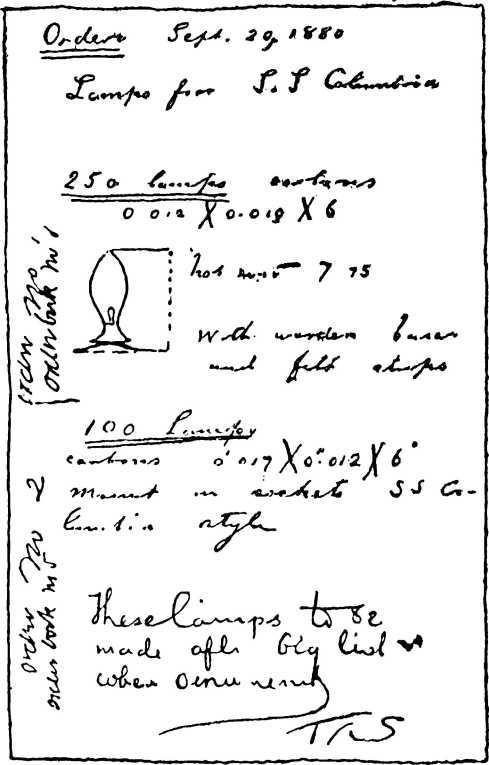 Orders Sept. 29, 1880
Lamps for S. S Columbia
250 lamps carbons
0 012 X 0.019 X 6
not over 7 75
With wooden bases
and felt straps
100 Lamps
carbons 0 017 X 0".012 X 6"
Mount in sockets S S Co-
lumbia style
These Lamps to be
made after big list
when
order No 1
order book no 5
order No 2
order book no 5